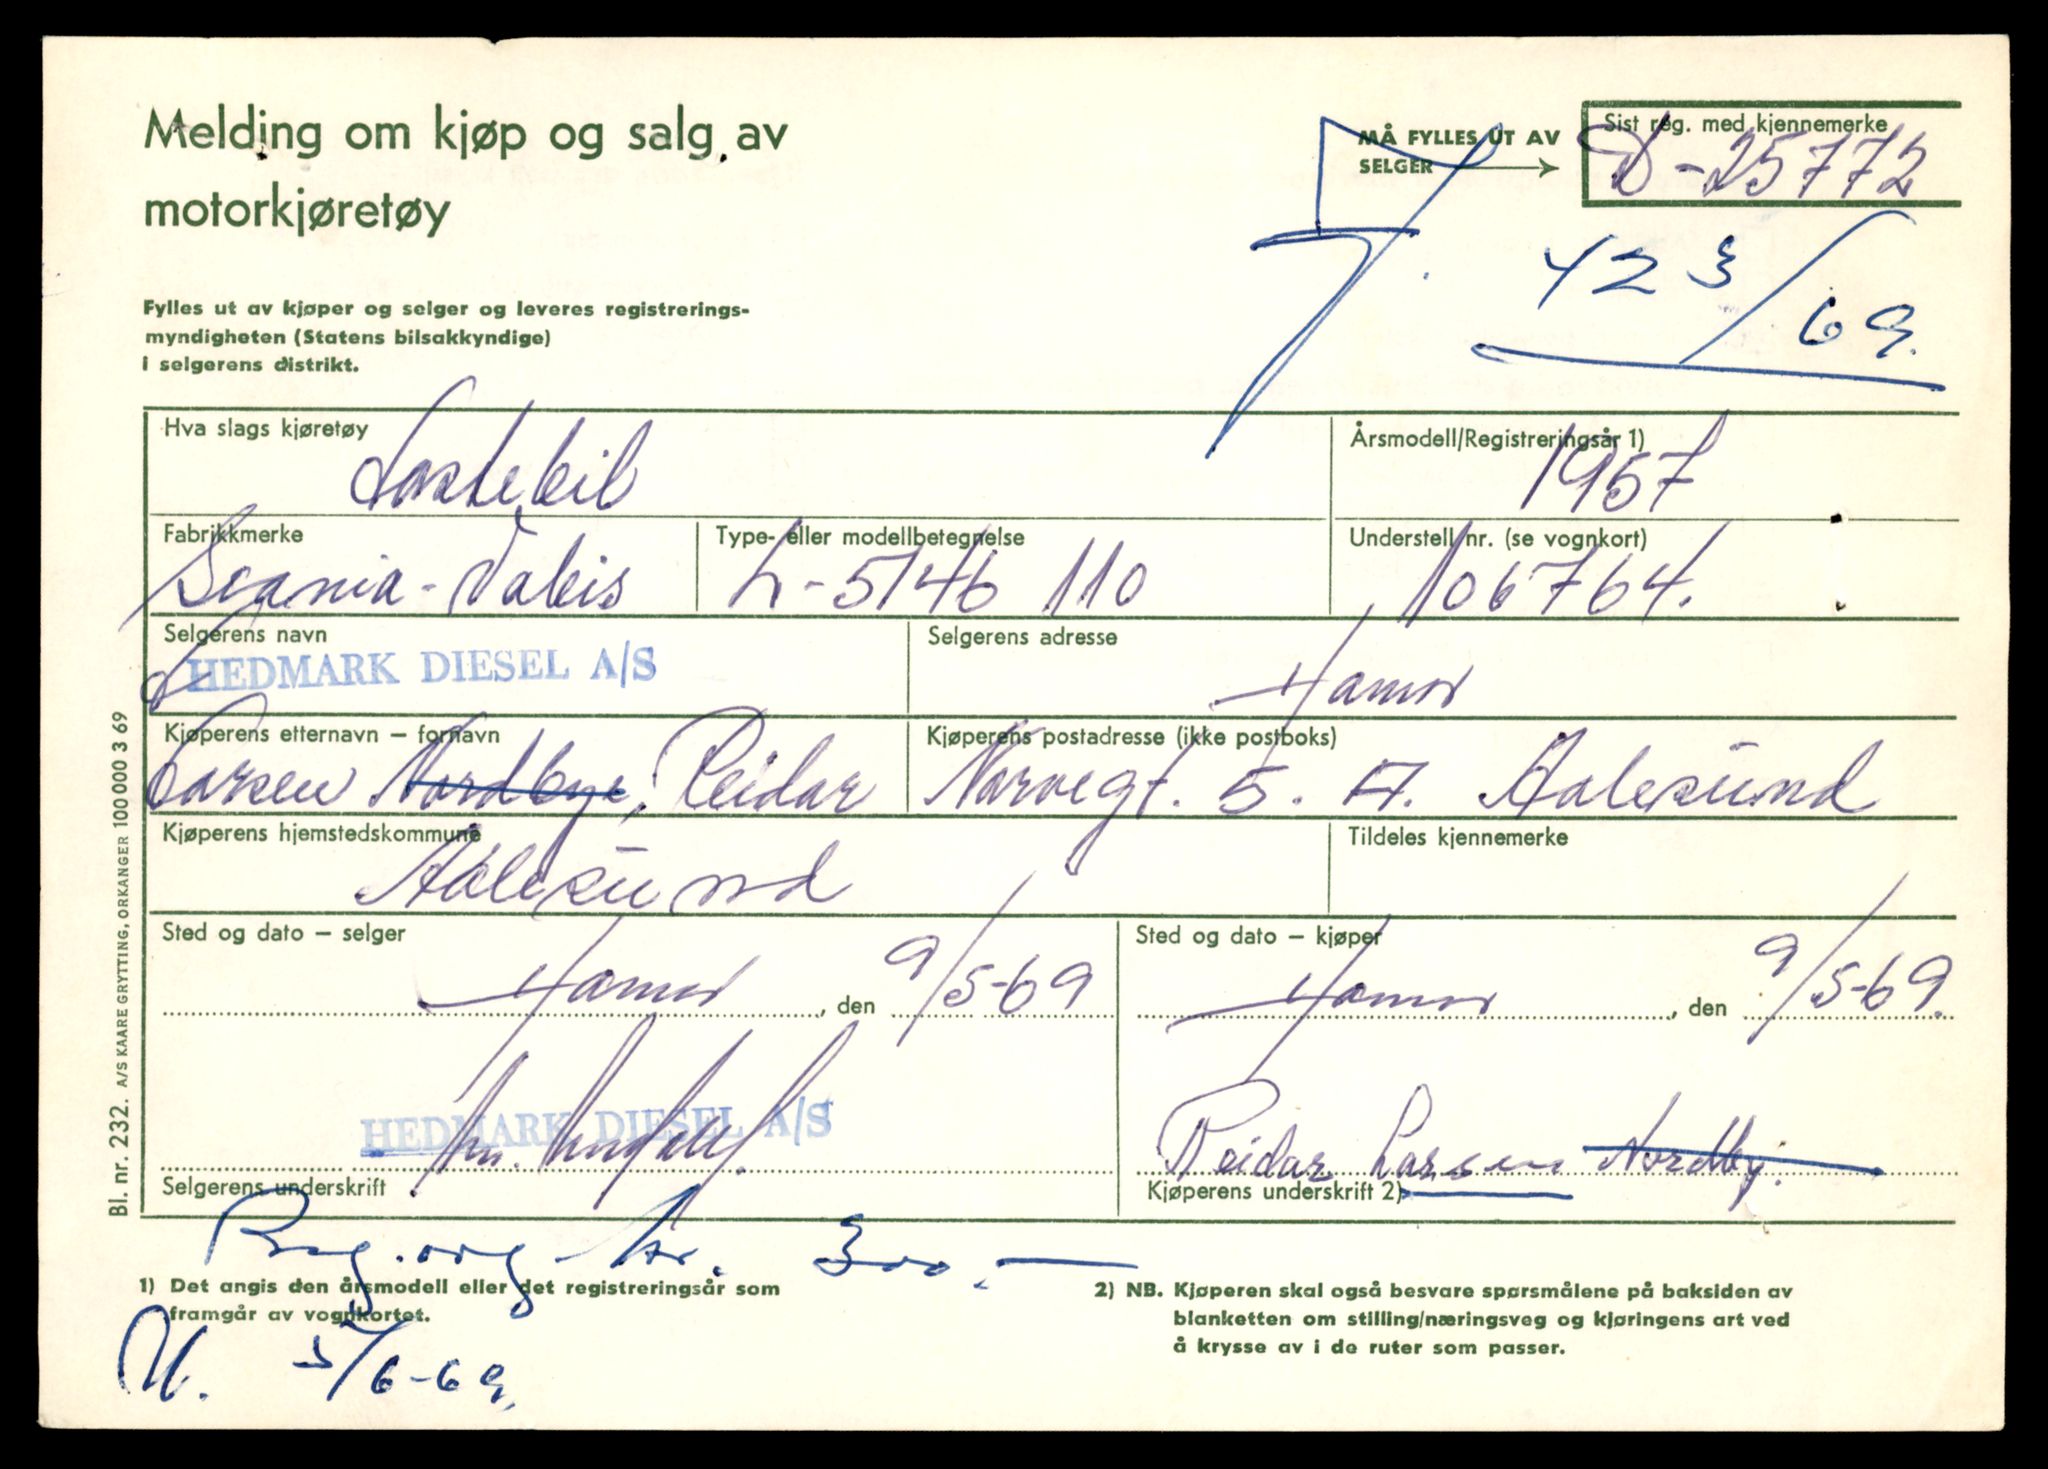 Melding om kjøp og salg av
motorkjøretøy
MÅ FYLLES UT AV
SELGER
Sist reg. med kjennemerke
D-25772
423/69.
Fylles ut av kjøper og selger og leveres registrerings-
myndigheten (Statens bilsakkyndige)
i selgerens distrikt.
Hva slags kjøretøy
Lastebil
Årsmodell/Registreringsår 1)
1957
Fabrikkmerke
Scania-Vabis
Type- eller modellbetegnelse
L-5146 110
Understell nr. (se vognkort)
106764.
Selgerens navn
HEDMARK DIESEL A/S
Selgerens adresse
Hamar
Kjøperens etternavn – fornavn
Larsen Nordbye, Reidar
Kjøperens postadresse (ikke postboks)
Norvegt. 5. A. Aalesund
Kjøperens hjemstedskommune
Aalesund
Tildeles kjennemerke
Sted og dato – selger
Hamar, den 9/5-69
Sted og dato – kjøper
Hamar, den 9/5-69.
HEDMARK DIESEL A/S
Selgerens underskrift
Reidar Larsen Nordby.
Kjøperens underskrift 2)
Reg. avg. kr. 300.—
1) Det angis den årsmodell eller det registreringsår som
framgår av vognkortet.
2) NB. Kjøperen skal også besvare spørsmålene på baksiden av
blanketten om stilling/næringsveg og kjøringens art ved
å krysse av i de ruter som passer.
U. 5/6-69.
Bl. nr. 232. A/S KAARE GRYTTING, ORKANGER 100 000 3 69